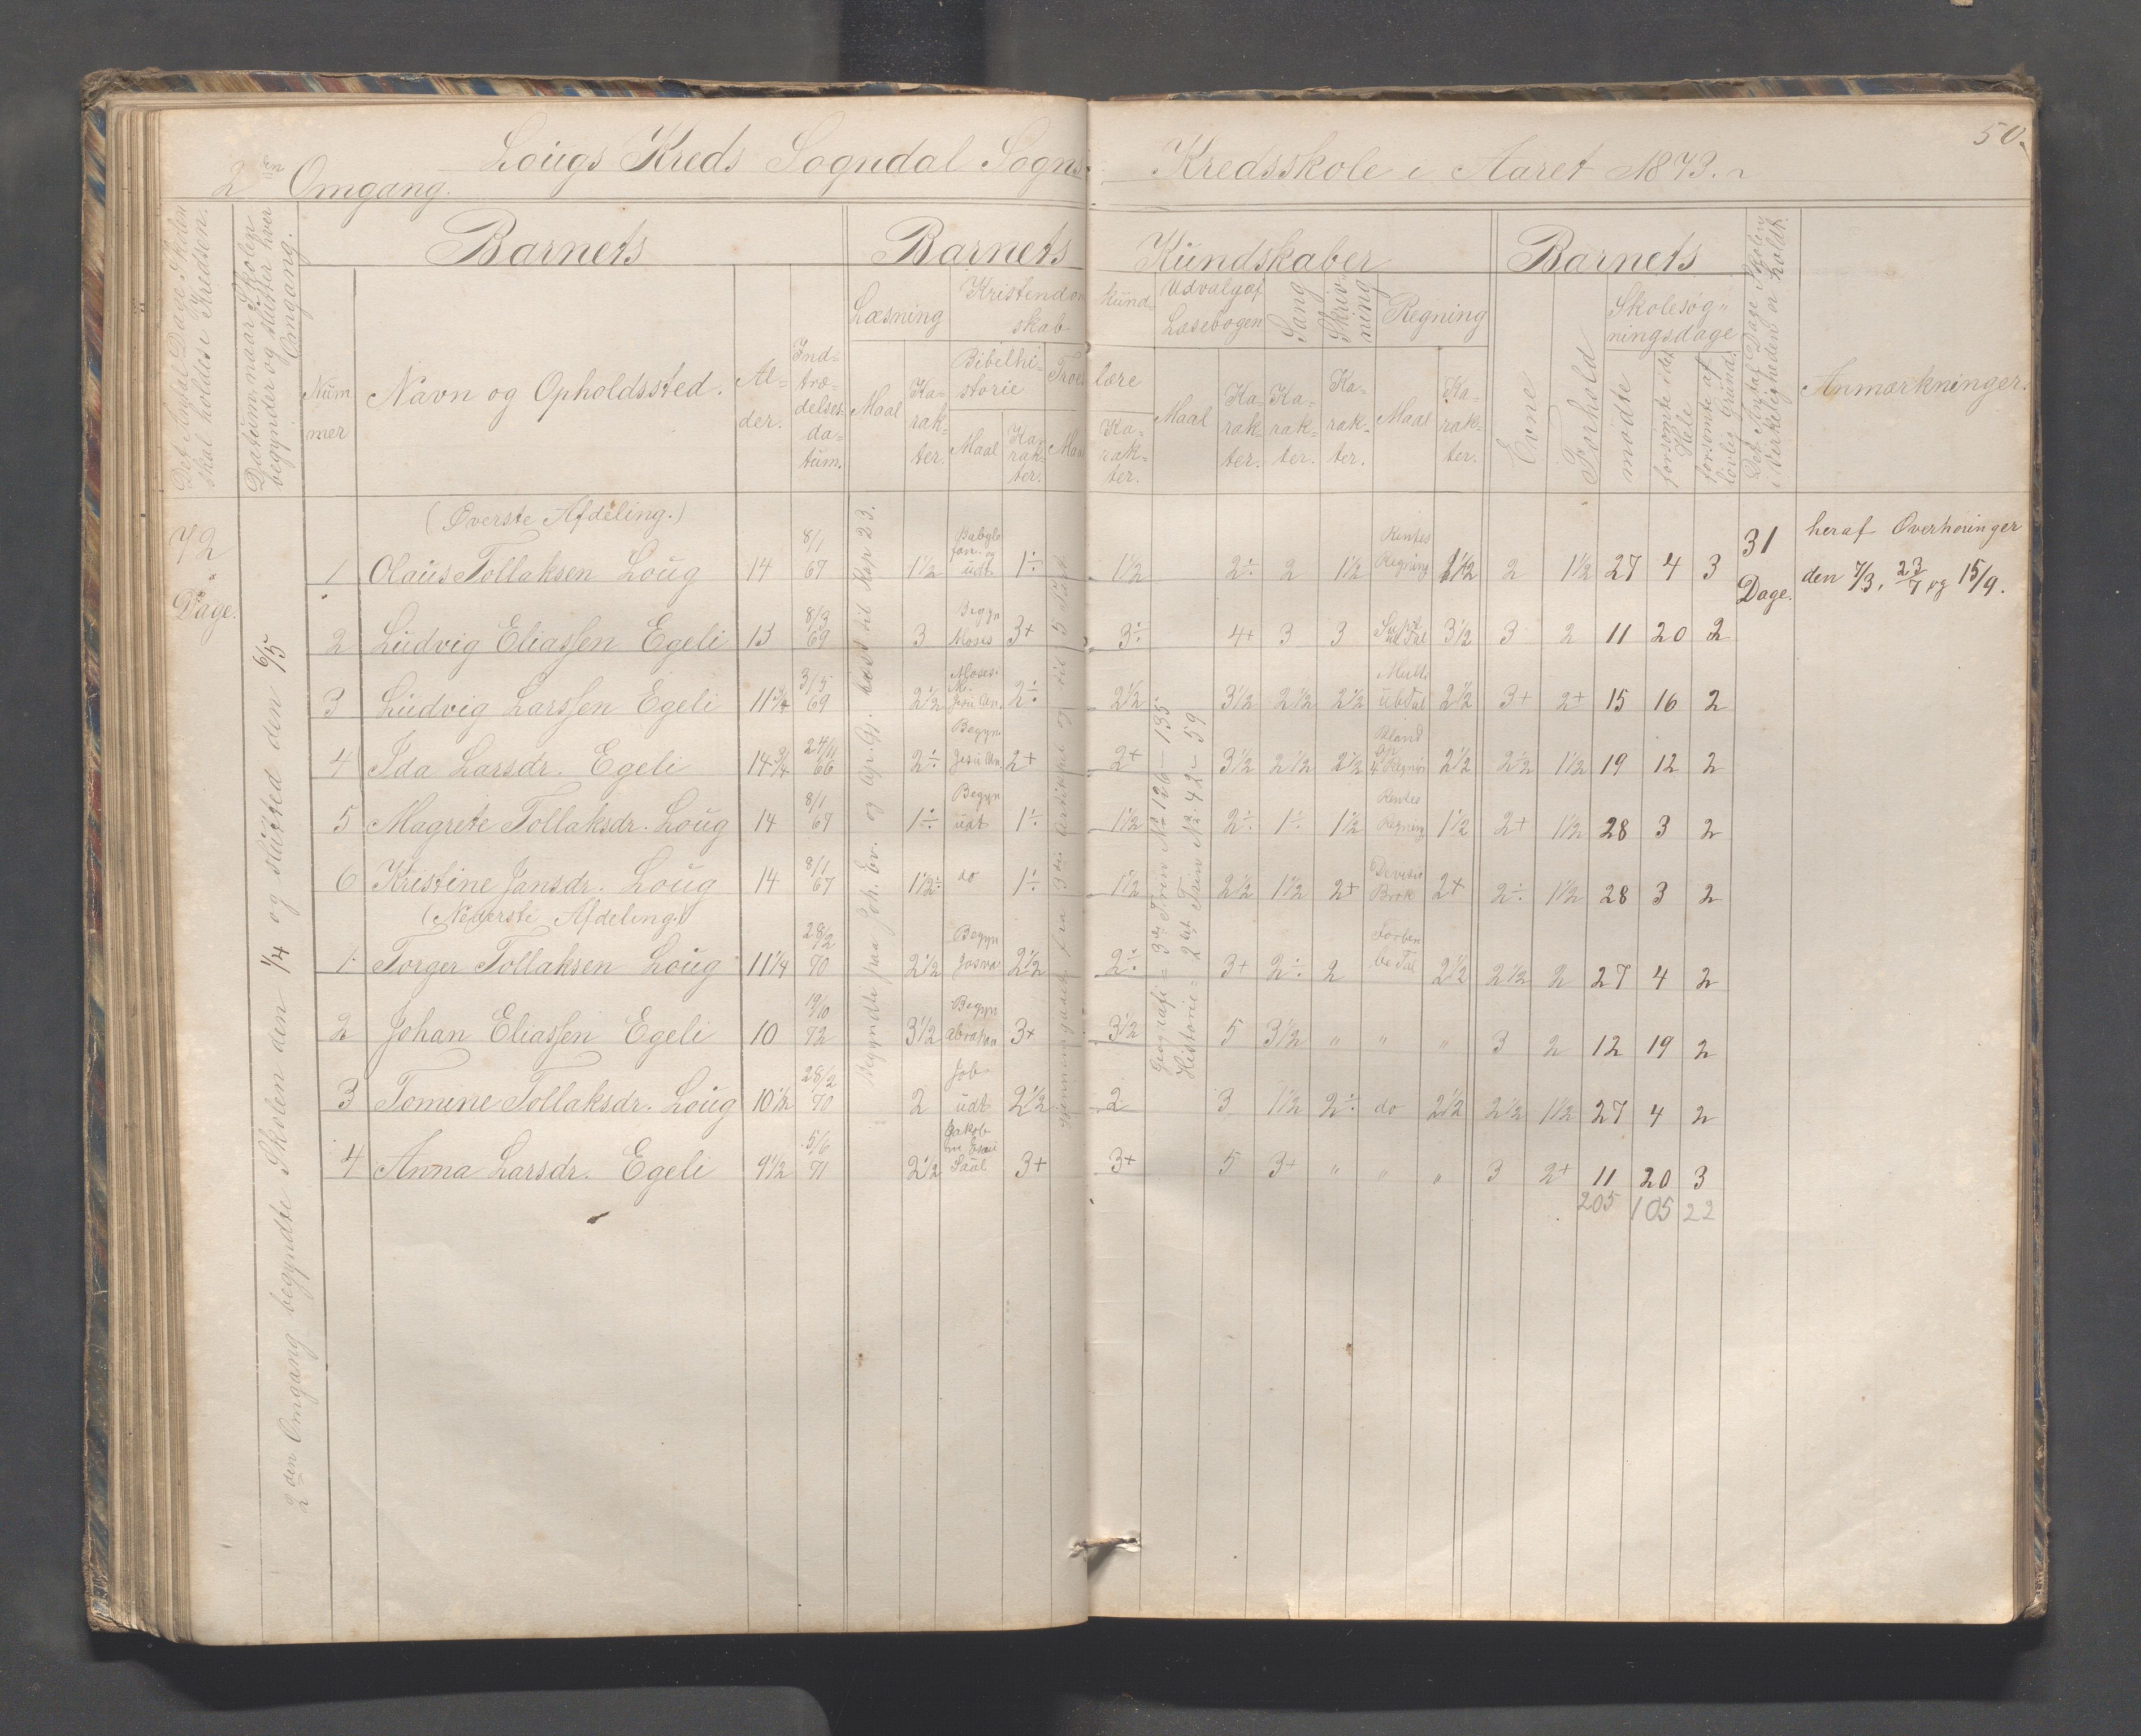 50.
2den Omgang. Lougs Kreds Sogndal Sogns Kredsskole i Aaret 1873.
Det Antal Dage Skolen skal holdes i Kredsen.
Datum, naar Skolen begynder og slutter hver Omgang.
Barnets
Barnets Kundskaber
Barnets
Nummer
Navn og Opholdssted.
Alder.
Indtrædelsesdatum.
Læsning
Maal
Karakter.
Kristendomskundskab
Bibelhistorie
Maal
Karakter.
Troeslære
Maal
Karakter.
Udvalg af Læsebogen
Maal
Karakter.
Sang
Karakter.
Skrivning
Karakter.
Regning
Maal
Karakter.
Evne
Forhold
Skolesøgningsdage
mødte
forsømte i det Hele
forsømte af lovlig Grund.
Det Antal Dage Skolen i Virkeligheden er holdt.
Anmærkninger.
72 Dage.
2den Omgang begyndte Skolen den 1/4 og slutted den 6/5
Begyndte paa Joh. Ev. og Ap. Gj. læst til Kap 23.
Gjennemgaaet fra 3die Artikkel og til 5
Geografi = 3die Trin No 126 – 135.
Historie = 2det Trin No 42 – 59
(Øverste Afdeling.)
1 Olaus Tollaksen Loug 14 8/1 67 1½ Babylo fan. og udt 1÷ 1½ 2÷ 2 1½ Rentes Regning 1½ 2 1½ 27 4 3 31 Dage. heraf Overhøringer
den 7/3, 23/7 og 15/9.
2 Ludvig Eliassen Egeli 13 8/3 69 3 Begyn Moses 3+ 3÷ 4+ 3 3 3½ 3 2 11 20 2
3 Ludvig Larssen Egeli 11¾ 3/5 69 2½ Moses. Jesu Un. 2÷ 2½ 3½ 2½ 2½ Mult. ubTal 2½ 3+ 2+ 15 16 2
4 Ida Larsdr. Egeli 14¾ 24/11 66 2÷ Begyn. Jesu Un. 2+ 2+ 3½ 2½ 2½ Bland 2½ 2½ 1½ 19 12 2
5 Magrete Tollaksdr. Loug 14 8/1 67 1÷ Begyn udt 1÷ 1½ 2÷ 1÷ 1½ Rentes Regning 1½ 2+ 1½ 28 3 2
6 Kristine Jansdr. Loug 14 8/1 67 1½÷ do 1÷ 1½ 2½ 1½ 2+ Devisis Brøk 2+ 2÷ 1½ 28 3 2
(Nederste Afdeling.)
1. Torger Tollaksen Loug 11¼ 28/2 70 2½ Begyn Josva 2½ 2÷ 3+ 2÷ 2 Forben be Tal 2½ 2½ 2 27 4 2
2 Johan Eliassen Egeli 10 19/10 72 3½ Begyn Abraham 3+ 3½ 5 3½ " " " 3 2 12 19 2
3 Tomine Tollaksdr. Loug 10½ 28/2 70 2 Job udt 2½ 2 3 1½ 2÷ do 2½ 2½ 1½ 27 4 2
4 Anna Larsdr. Egeli 9½ 5/6 71 2½ Jakob Esau Saul 3+ 3+ 5 3+ " " " 3 2+ 11 20 3
205 105 22